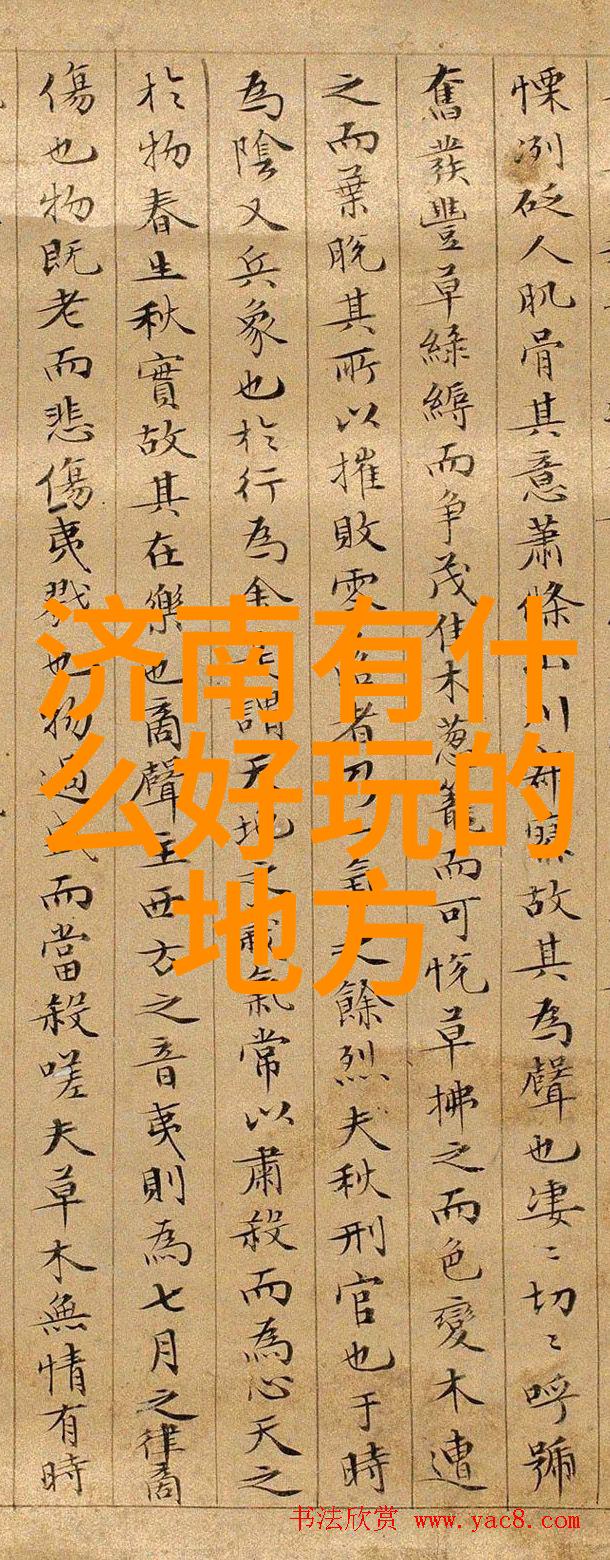 慄冽砭人肌骨其意蕭條山川寂寥故其為聲也凄〻切〻呼號
奮發豐草綠縟而争茂佳木葱籠而可悅草拂之而色變木遭
之而葉脫其所以摧敗零落者乃一氣之餘烈夫秋刑官也于時
為陰又兵象也於行為金是謂天地之義氣常以肅殺而為心天之
於物春生秋實故其在樂也商聲主西方之音夷則為七月之律商
傷也物既老而悲傷夷戮也物過盛而當殺嗟夫草木無情有時
济南有什
么好玩的
地方
书法欣赏 www.yac8.com